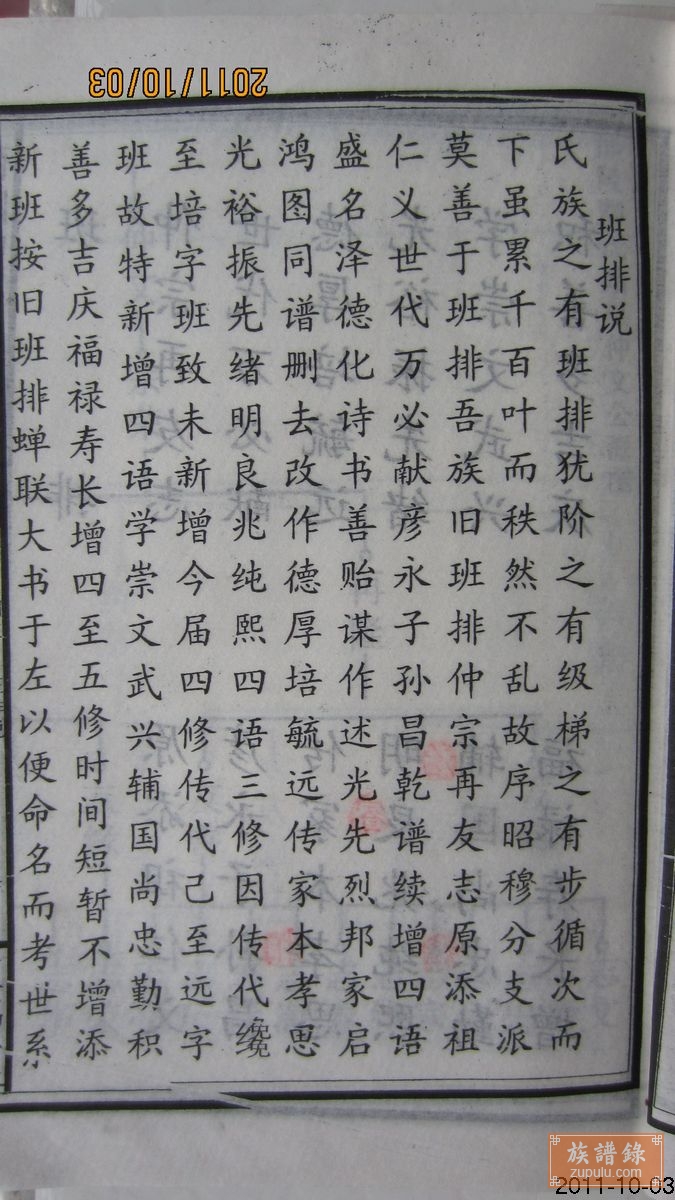 班排说
氏族之有班排犹阶之有级梯之有步循次而
下虽累千百叶而秩然不乱故序昭穆分支派
莫善于班排吾族旧班排仲宗再友志原添祖
仁义世代万必献彦永子孙昌乾谱续增四语
盛名泽德化诗书善贻谋作述光先烈邦家启
鸿图同谱删去改作德厚培毓远传家本孝思
光裕振先绪明良兆纯熙四语三修因传代纔
至培字班致未新增今届四修传代己至远字
班故特新增四语学崇文武兴辅国尚忠勤积
善多吉庆福禄寿长增四至五修时间短暂不增添
新班按旧班排蝉联大书于左以便命名而考世系
2011/10/03
族譜錄
zupulu.com
2011-10-03